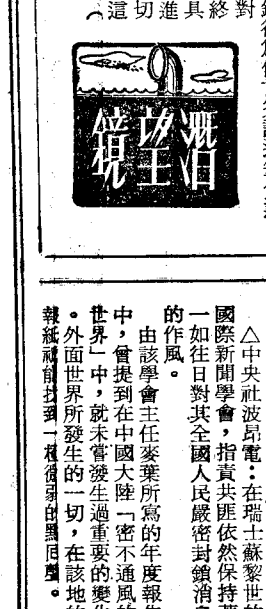 對
終
具
進
切
這
潛望鏡
△中央社波昂電：在瑞士蘇黎世的
國際新聞學會，指責共匪依然保持著
一如往日對其全國人民嚴密封鎖消
的作風。
由該學會主任麥葉所寫的年度報告
中，曾提到在中國大陸「密不通風的
世界」中，就未嘗發生過重要的變化
。外面世界所發生的一切，在該地的
報紙祗能找到一種微弱的。